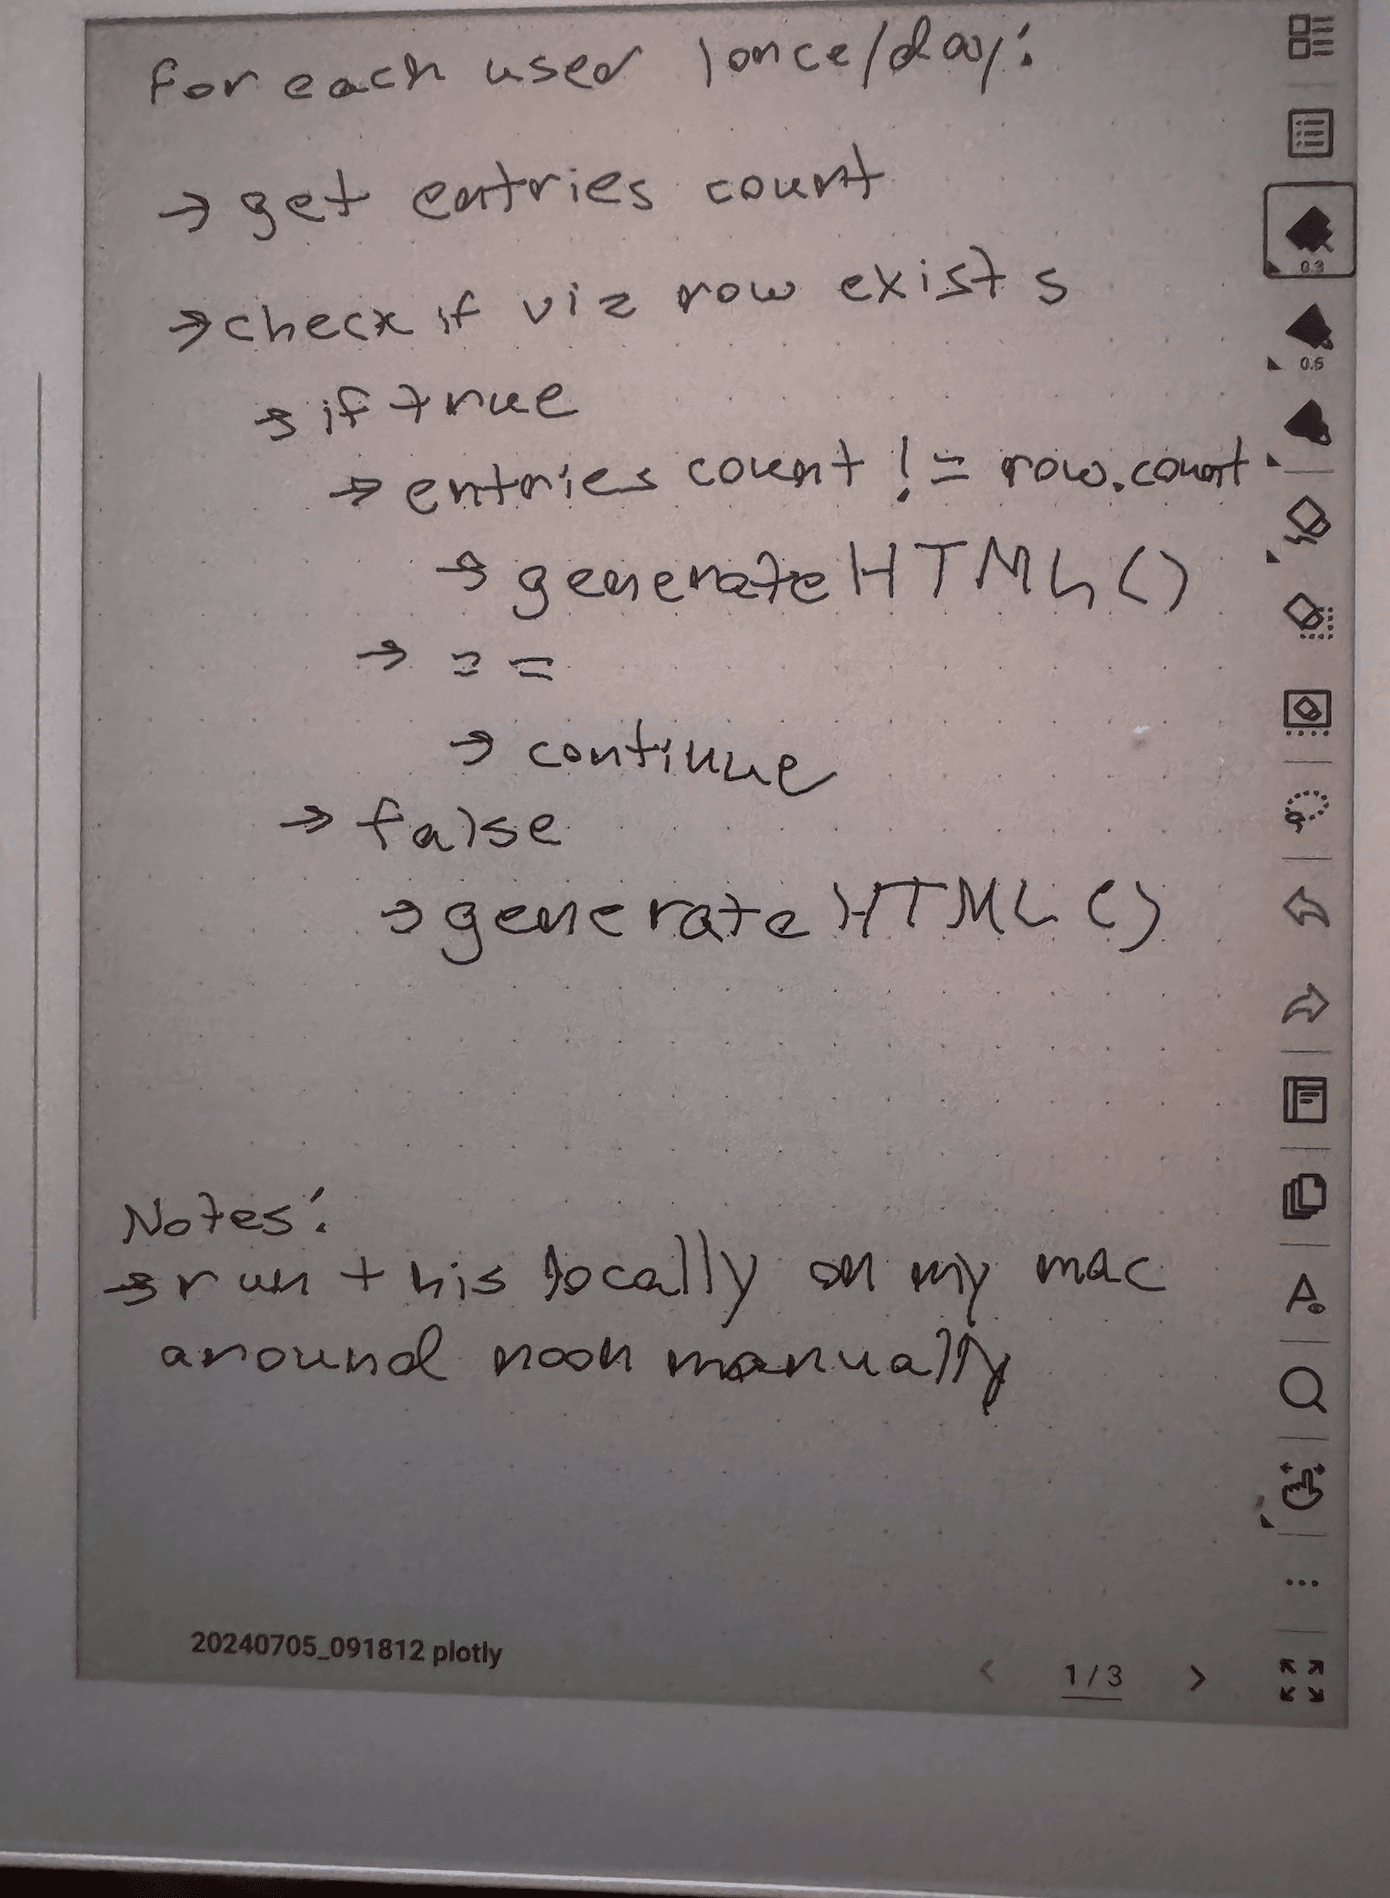 for each used 1once/day:
→ get entries count
→ check if viz row exists
→ if true
→ entries count != row.count
→ generateHTML()
→ ==
→ continue
→ false
→ generateHTML()
Notes:
→ run this locally on my mac
around noon manually
20240705_091812 plotly
< 1/3 >
0.3
0.5